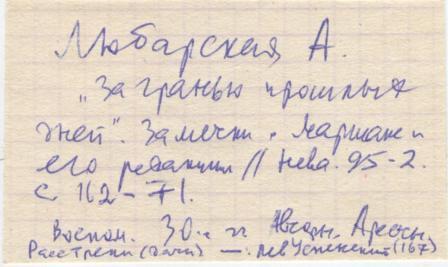 Любарская А.
„За гранью прошлых
дней". Заметки о Маршаке и
его редакции // Нева. 95-2.
с. 162-71.
Воспом. 30-х гг. Авторы. Аресты.
Расстрелы (дачи) — Лев Успенский (167)